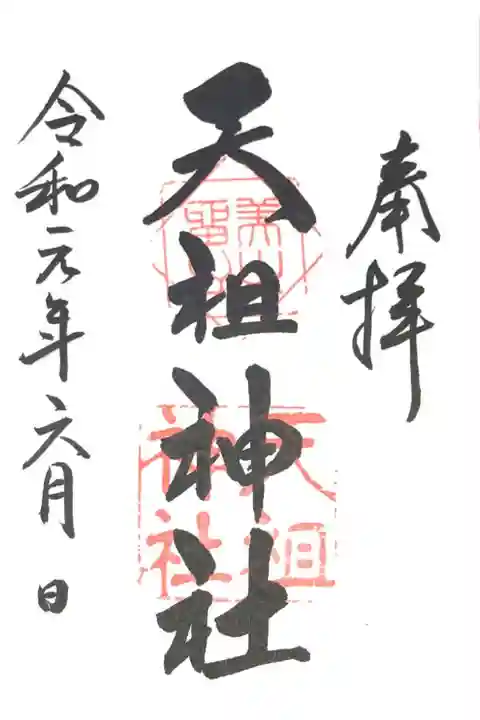 奉拝
天祖神社
天祖
神社
令和元年六月 日